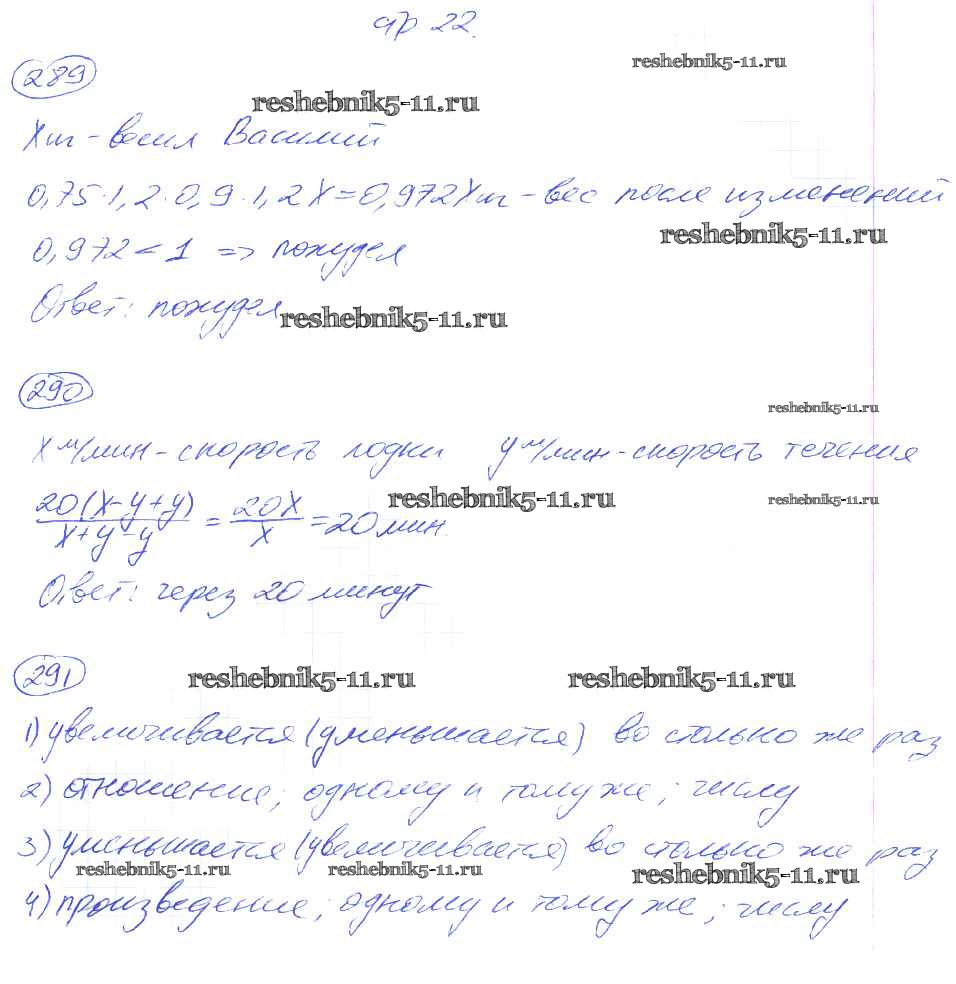 стр 22.
reshebnik5-11.ru
289
reshebnik5-11.ru
X кг - весил Василий
0,75·1,2·0,9·1,2X=0,972X кг - вес после изменений
reshebnik5-11.ru
0,972<1 => похудел
Ответ: похудел
reshebnik5-11.ru
290
reshebnik5-11.ru
X м/мин - скорость лодки y м/мин - скорость течения
reshebnik5-11.ru reshebnik5-11.ru
20(X-y+y)/X+y-y = 20X/X = 20 мин.
Ответ: через 20 минут
291
reshebnik5-11.ru reshebnik5-11.ru
1) увеличивается (уменьшается) во столько же раз
2) отношение; одному и тому же; числу
3) уменьшается (увеличивается) во столько же раз
reshebnik5-11.ru reshebnik5-11.ru reshebnik5-11.ru
4) произведение; одному и тому же; числу